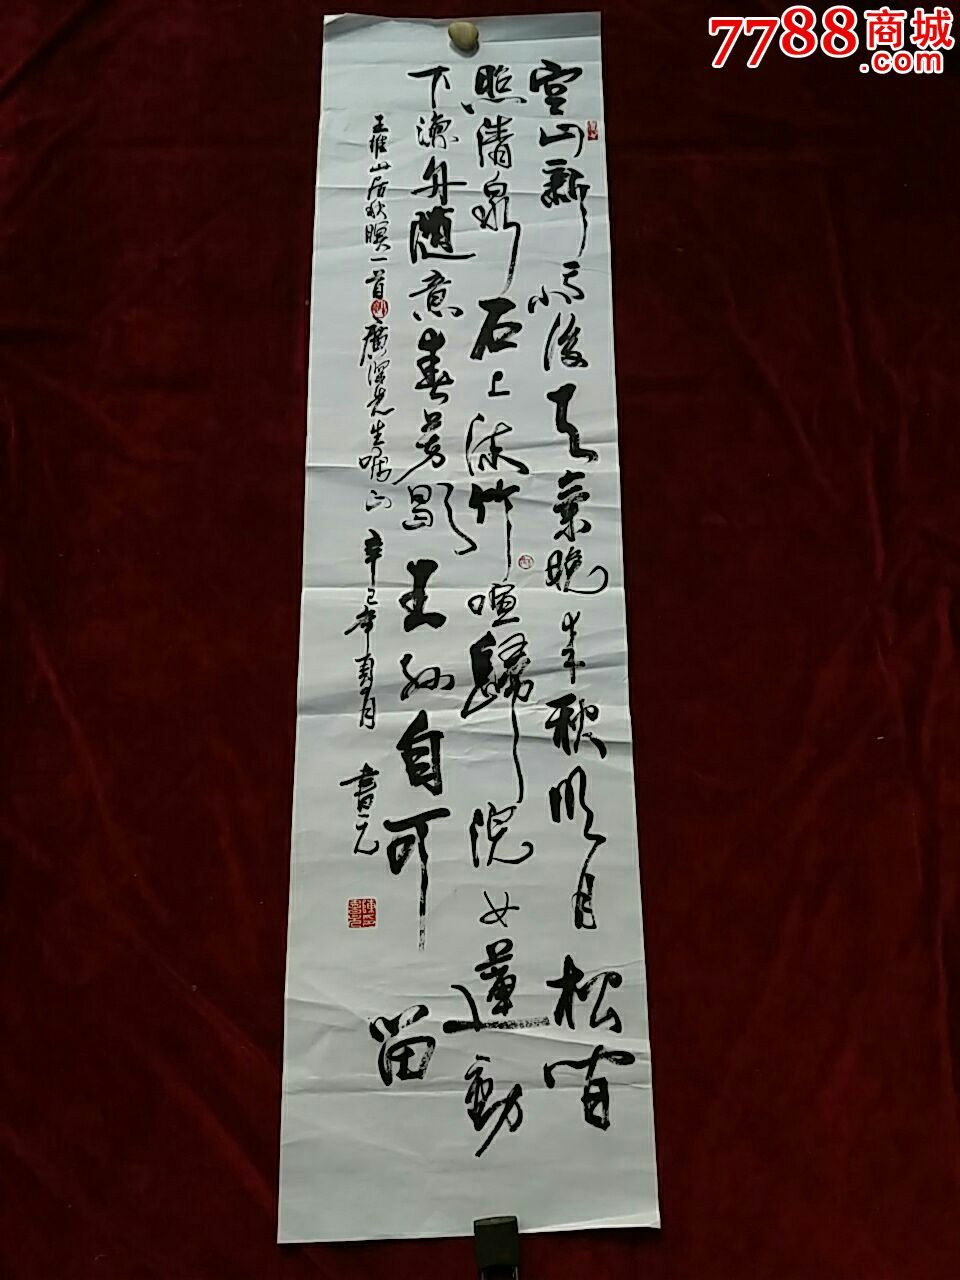 7788商城
.com
空山新雨後天氣晚來秋明月松間
照清泉石上流竹喧歸浣女蓮動
下漁舟隨意春芳歇王孫自可留
王維山居秋暝一首廣深先生囑正辛巳年夏月書元